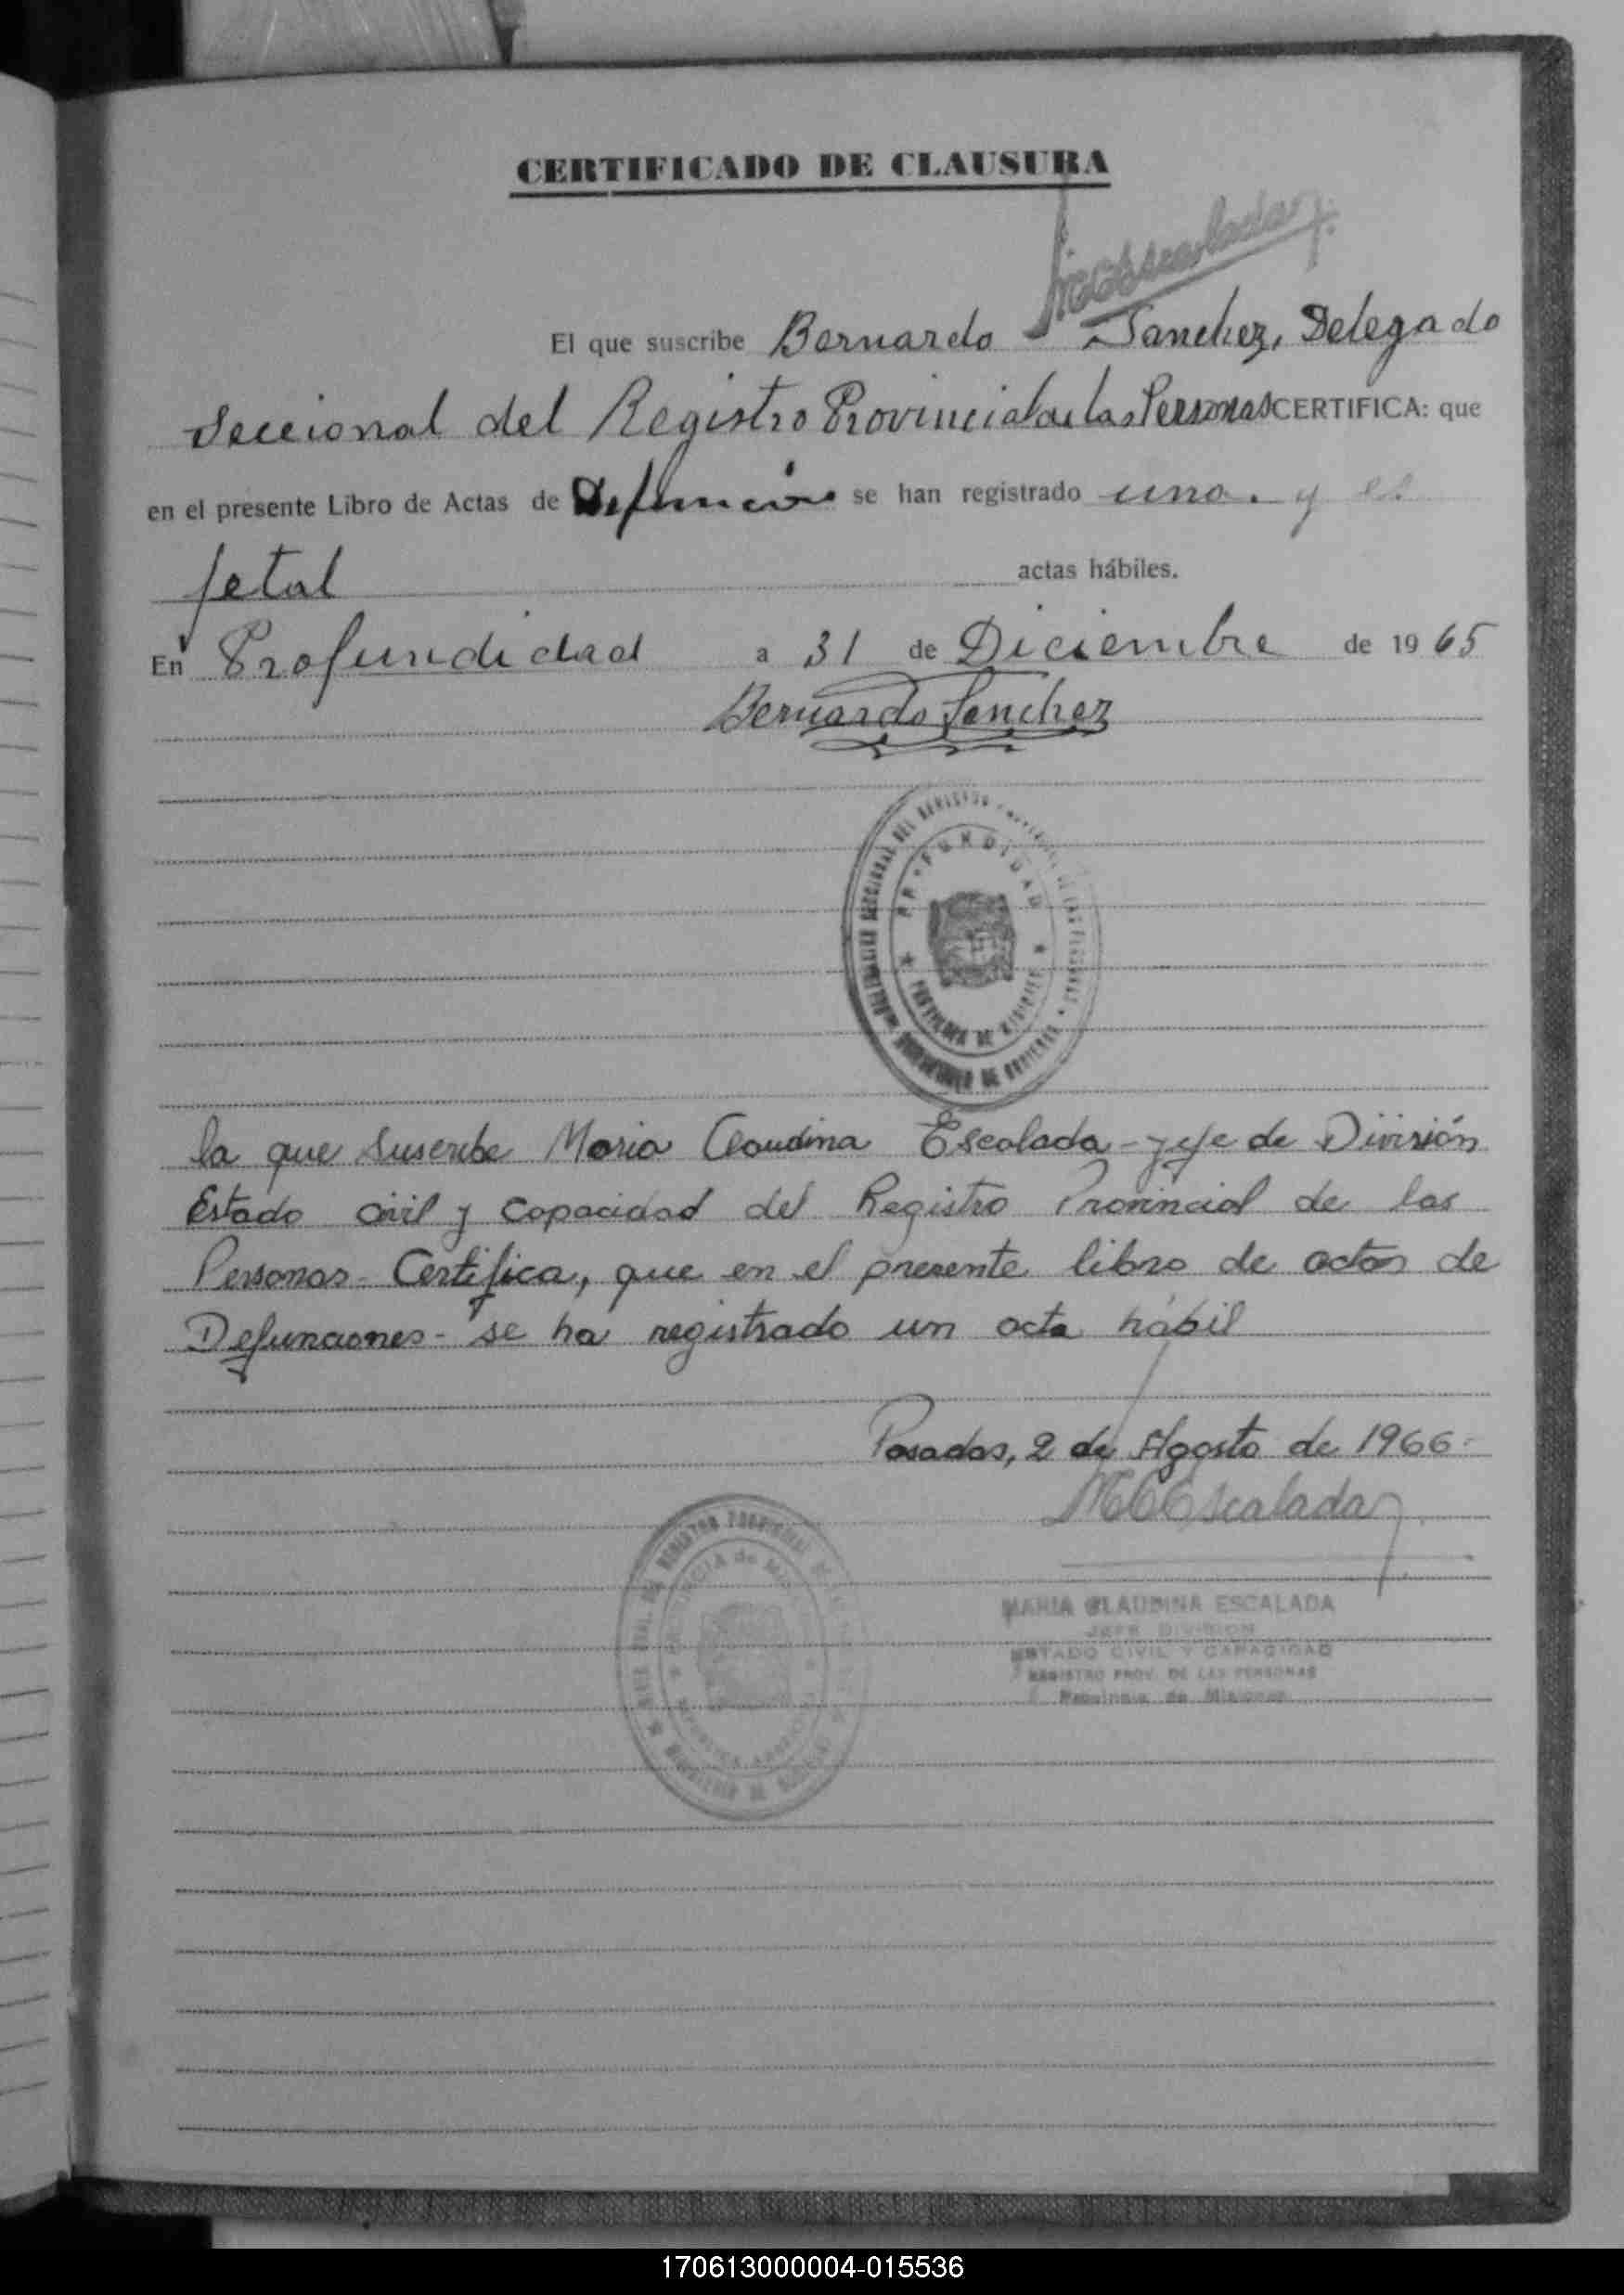 CERTIFICADO DE CLAUSURA
MCEscalada
El que suscribe Bernardo Sanchez, Delegado
Seccional del Registro Provincial de las Personas CERTIFICA: que
en el presente Libro de Actas de Defunción se han registrado una. y es
fetal actas hábiles.
En Profundidad a 31 de Diciembre de 1965
Bernardo Sanchez
SECCIONAL DEL REGISTRO DE LAS PERSONAS
PROFUNDIDAD
PROVINCIA DE MISIONES
MINISTERIO DE GOBIERNO
la que suscribe Maria Claudina Escalada - jefe de División
Estado Civil y Capacidad del Registro Provincial de las
Personas - Certifica, que en el presente libro de actas de
Defunciones - se ha registrado un acta hábil
Posadas, 2 de Agosto de 1966.
MCEscalada
REGISTRO PROVINCIAL DE
PROVINCIA de MISIONES
REPUBLICA ARGENTINA
MARIA CLAUDINA ESCALADA
JEFE DIVISION
ESTADO CIVIL Y CAPACIDAD
REGISTRO PROV. DE LAS PERSONAS
Provincia de Misiones
170613000004-015536